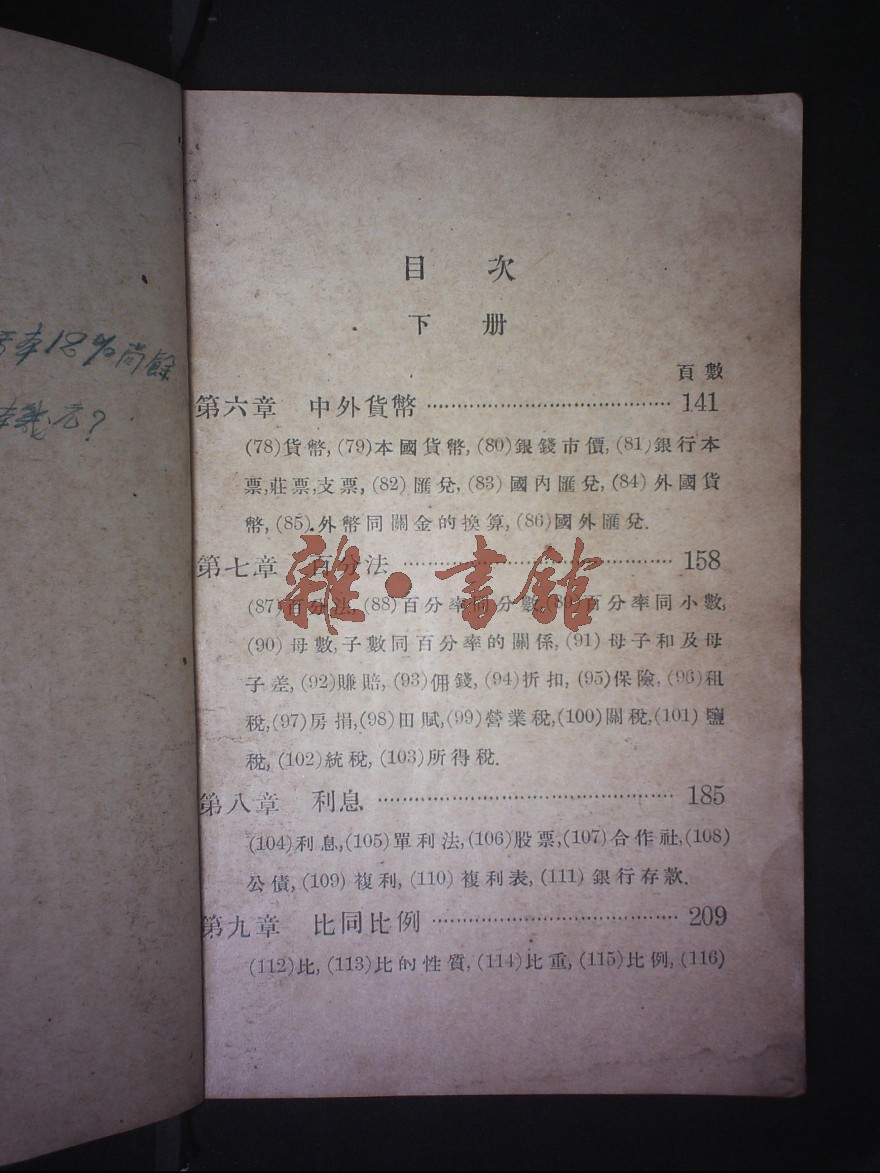 目 次
下 册
頁 數
第六章 中外貨幣 ………………………………… 141
(78)貨幣, (79)本國貨幣, (80)銀錢市價, (81)銀行本
票,莊票,支票, (82) 匯兌, (83) 國內匯兌, (84) 外國貨
幣, (85) 外幣同關金的換算, (86)國外匯兌.
第七章 百分法 ………………………………… 158
(87)百分法, (88)百分率同分數, (89)百分率同小數,
(90) 母數, 子數同百分率的關係, (91) 母子和及母
子差, (92)賺賠, (93)佣錢, (94)折扣, (95)保險, (96)租
稅, (97)房捐, (98)田賦, (99)營業稅, (100)關稅, (101) 鹽
稅, (102)統稅, (103)所得稅.
第八章 利息 ………………………………… 185
(104)利息, (105)單利法, (106)股票, (107)合作社, (108)
公債, (109) 複利, (110) 複利表, (111) 銀行存款.
第九章 比同比例 ………………………………… 209
(112)比, (113)比的性質, (114)比重, (115)比例, (116)
雜·書館
本18%尚餘
幾?